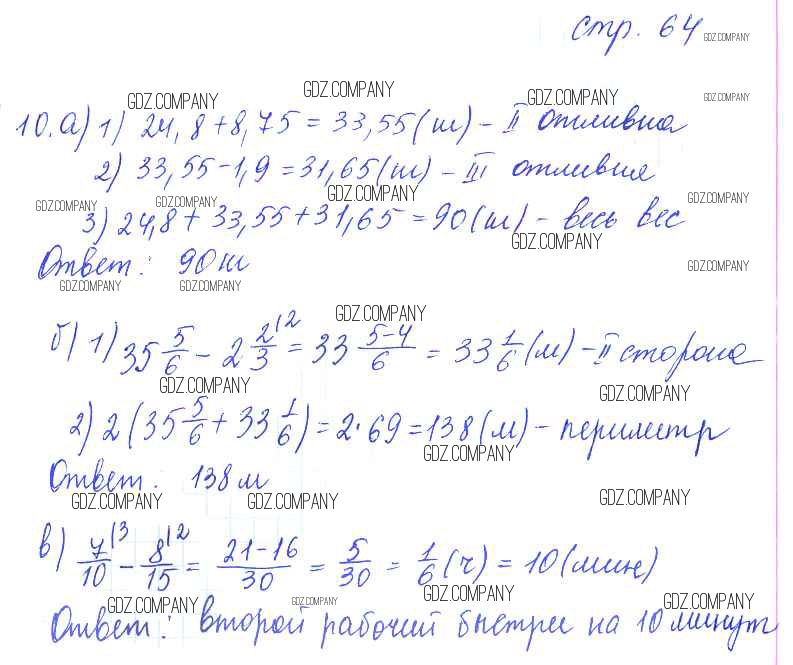 стр. 64 GDZ.COMPANY
GDZ.COMPANY GDZ.COMPANY GDZ.COMPANY GDZ.COMPANY
10. а) 1) 24,8 + 8,75 = 33,55 (т) - II отливка
2) 33,55 - 1,9 = 31,65 (т) - III отливка
GDZ.COMPANY GDZ.COMPANY GDZ.COMPANY GDZ.COMPANY
3) 24,8 + 33,55 + 31,65 = 90 (т) - весь вес
GDZ.COMPANY
Ответ: 90 т GDZ.COMPANY
GDZ.COMPANY GDZ.COMPANY
GDZ.COMPANY
б) 1) 35 5/6 - 2 2/3 |2 = 33 5-4/6 = 33 1/6 (м) - II сторона
GDZ.COMPANY GDZ.COMPANY
2) 2 (35 5/6 + 33 1/6) = 2 · 69 = 138 (м) - периметр
GDZ.COMPANY
Ответ: 138 м
GDZ.COMPANY GDZ.COMPANY GDZ.COMPANY
в) 7/10 |3 - 8/15 |2 = 21-16/30 = 5/30 = 1/6 (ч) = 10 (мин)
GDZ.COMPANY GDZ.COMPANY GDZ.COMPANY GDZ.COMPANY
Ответ: второй рабочий быстрее на 10 минут